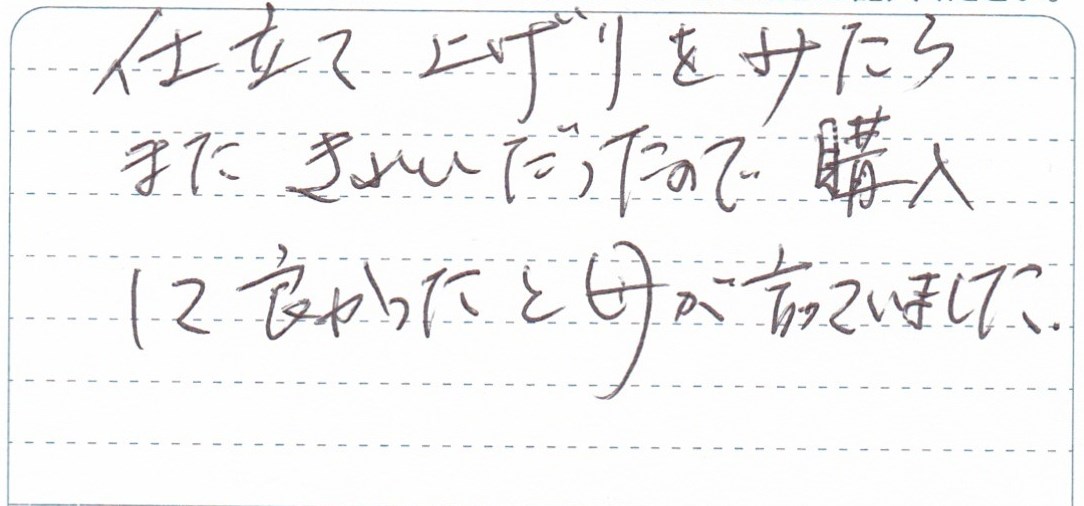 仕立て上げりをみたら
またきれいだったので購入
して良かったと母が言っていました.